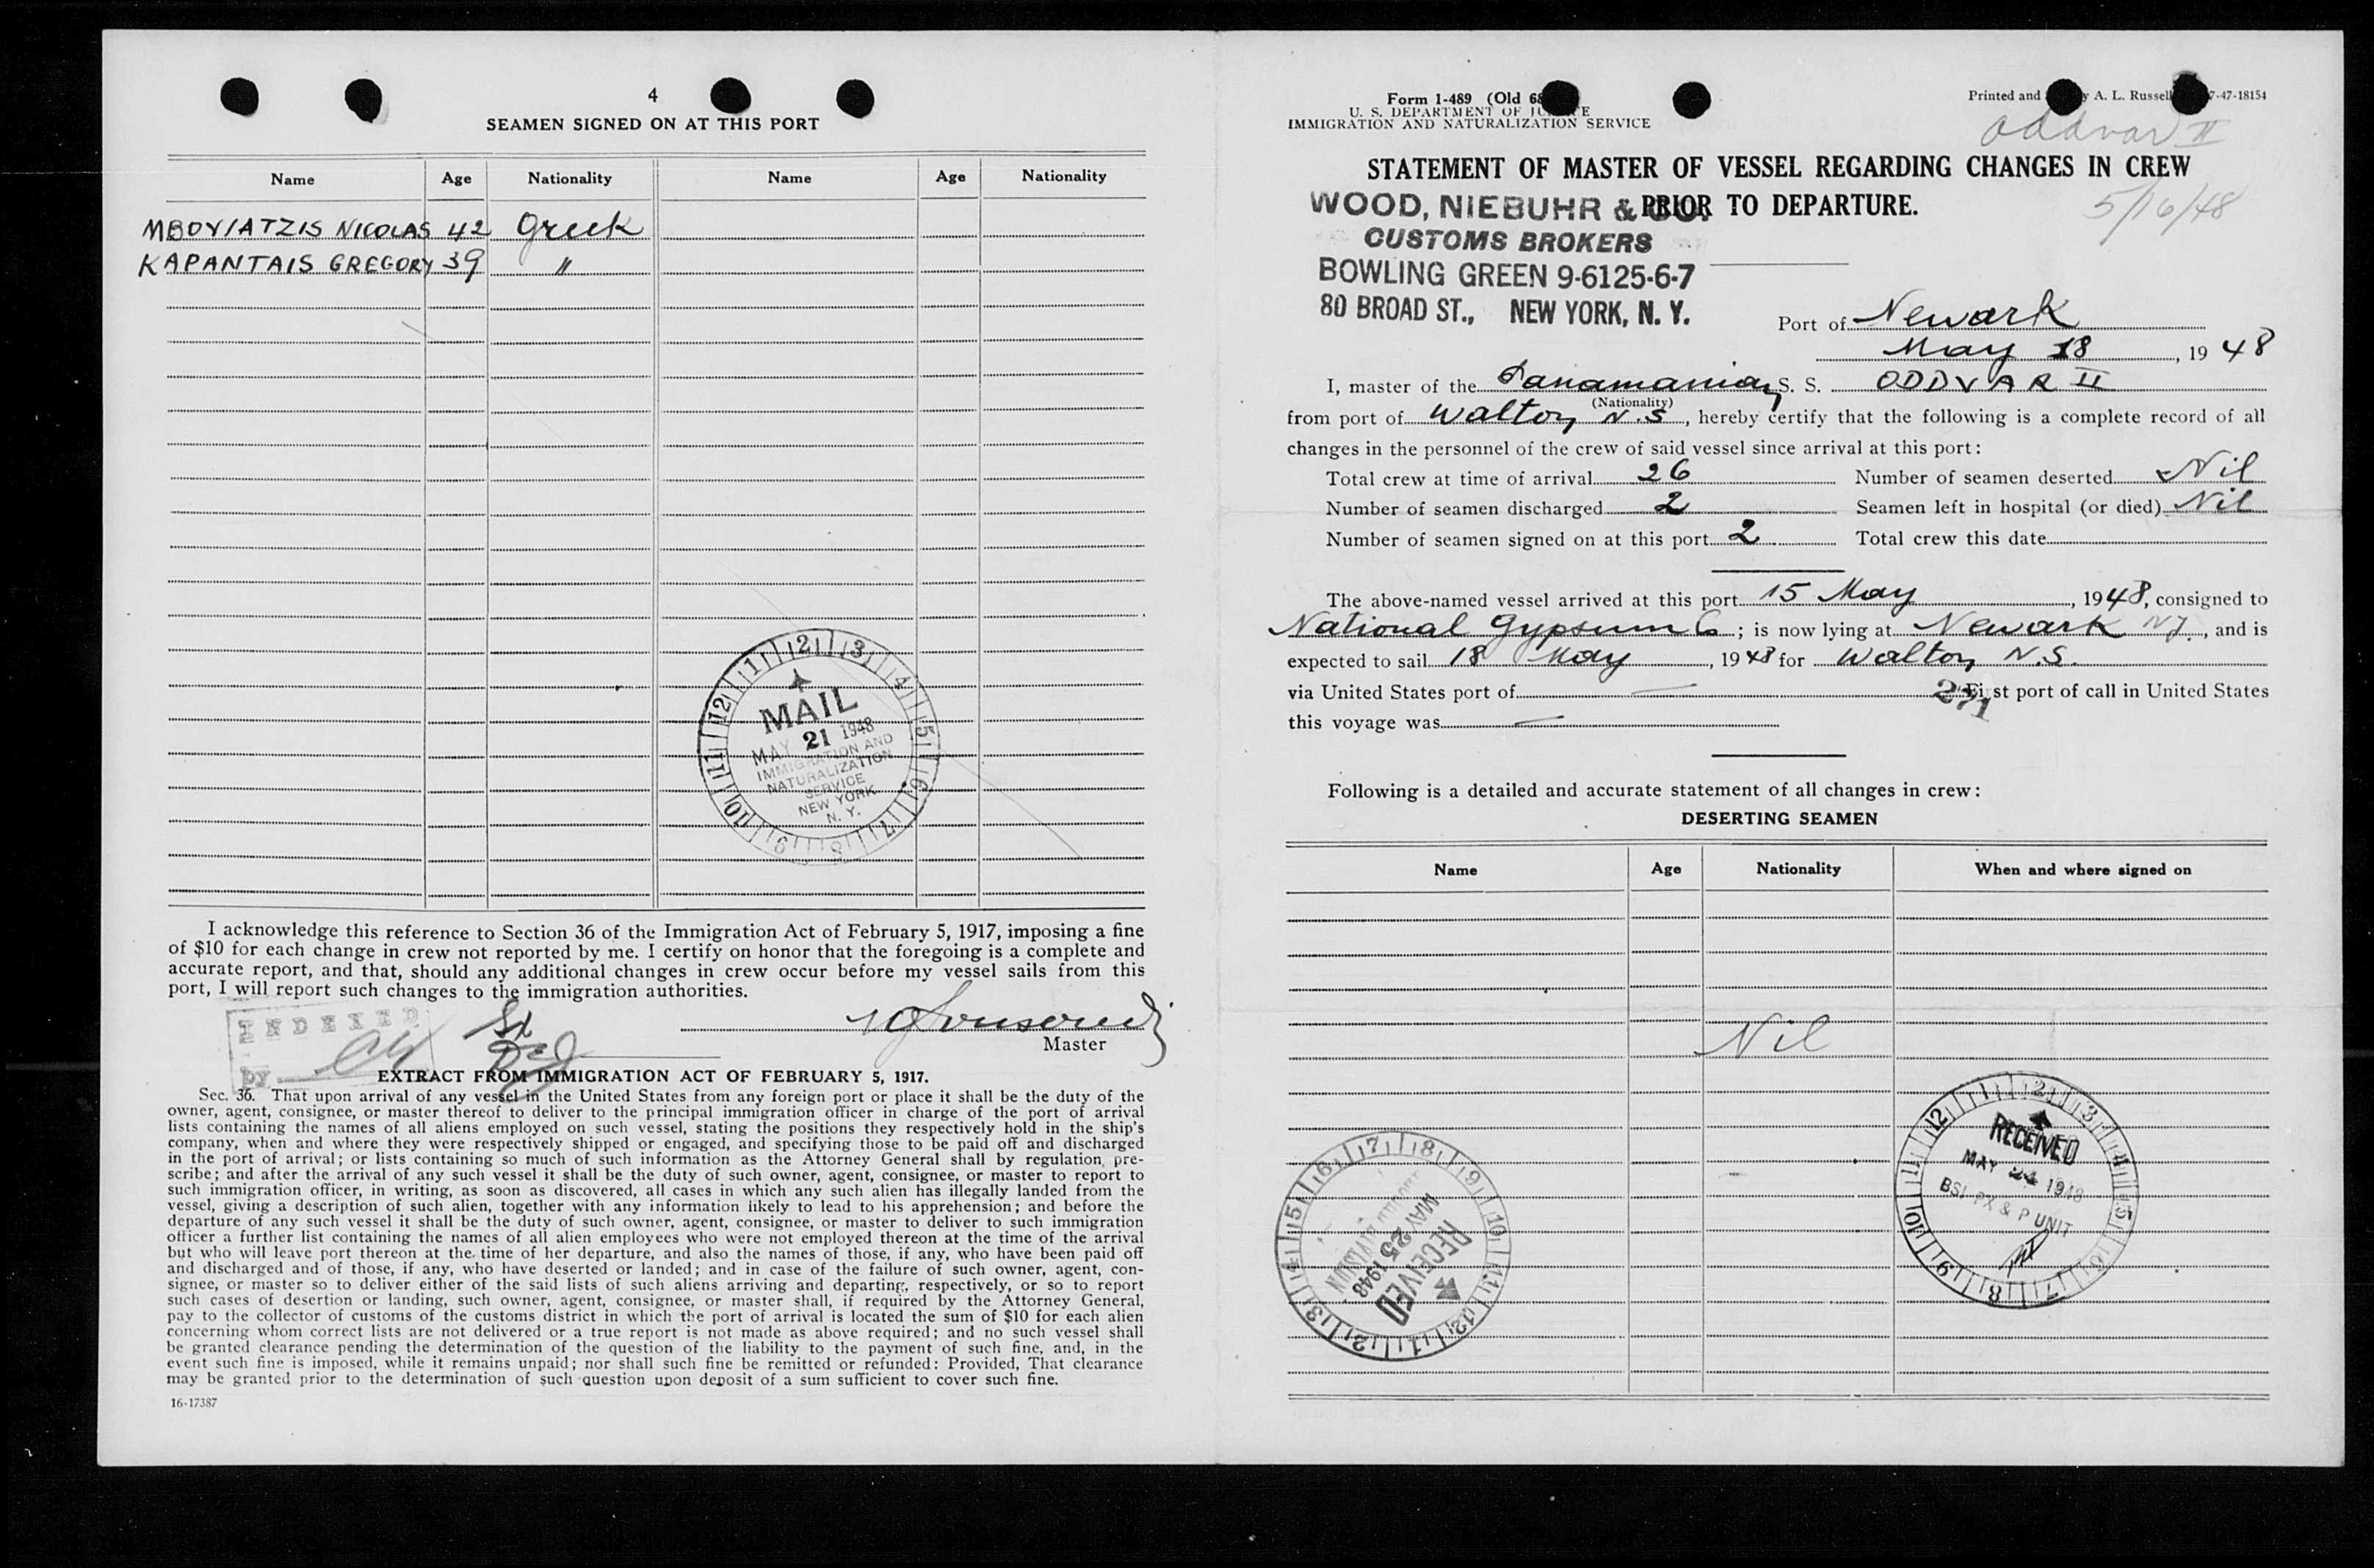 4
SEAMEN SIGNED ON AT THIS PORT
Name Age Nationality Name Age Nationality
MBOYIATZIS NICOLAS 42 Greek
KAPANTAIS GREGORY 39 "
MAIL
MAY 21 1948
IMMIGRATION AND
NATURALIZATION
SERVICE
NEW YORK
N. Y.
I acknowledge this reference to Section 36 of the Immigration Act of February 5, 1917, imposing a fine
of $10 for each change in crew not reported by me. I certify on honor that the foregoing is a complete and
accurate report, and that, should any additional changes in crew occur before my vessel sails from this
port, I will report such changes to the immigration authorities.
INDEXED
by
Master
EXTRACT FROM IMMIGRATION ACT OF FEBRUARY 5, 1917.
Sec. 36. That upon arrival of any vessel in the United States from any foreign port or place it shall be the duty of the
owner, agent, consignee, or master thereof to deliver to the principal immigration officer in charge of the port of arrival
lists containing the names of all aliens employed on such vessel, stating the positions they respectively hold in the ship's
company, when and where they were respectively shipped or engaged, and specifying those to be paid off and discharged
in the port of arrival; or lists containing so much of such information as the Attorney General shall by regulation, pre-
scribe; and after the arrival of any such vessel it shall be the duty of such owner, agent, consignee, or master to report to
such immigration officer, in writing, as soon as discovered, all cases in which any such alien has illegally landed from the
vessel, giving a description of such alien, together with any information likely to lead to his apprehension; and before the
departure of any such vessel it shall be the duty of such owner, agent, consignee, or master to deliver to such immigration
officer a further list containing the names of all alien employees who were not employed thereon at the time of the arrival
but who will leave port thereon at the time of her departure, and also the names of those, if any, who have been paid off
and discharged and of those, if any, who have deserted or landed; and in case of the failure of such owner, agent, con-
signee, or master so to deliver either of the said lists of such aliens arriving and departing, respectively, or so to report
such cases of desertion or landing, such owner, agent, consignee, or master shall, if required by the Attorney General,
pay to the collector of customs of the customs district in which the port of arrival is located the sum of $10 for each alien
concerning whom correct lists are not delivered or a true report is not made as above required; and no such vessel shall
be granted clearance pending the determination of the question of the liability to the payment of such fine, and, in the
event such fine is imposed, while it remains unpaid; nor shall such fine be remitted or refunded: Provided, That clearance
may be granted prior to the determination of such question upon deposit of a sum sufficient to cover such fine.
16-17387
Form I-489 (Old 68
U. S. DEPARTMENT OF JUSTICE
IMMIGRATION AND NATURALIZATION SERVICE
Printed and A. L. Russell 7-47-18154
Oddvar II
5/16/48
STATEMENT OF MASTER OF VESSEL REGARDING CHANGES IN CREW
PRIOR TO DEPARTURE.
WOOD, NIEBUHR & CO.
CUSTOMS BROKERS
BOWLING GREEN 9-6125-6-7
80 BROAD ST., NEW YORK, N. Y.
Port of Newark
May 18, 1948
I, master of the Panamanian S. S. ODDVAR II
(Nationality)
from port of Walton N.S, hereby certify that the following is a complete record of all
changes in the personnel of the crew of said vessel since arrival at this port:
Total crew at time of arrival 26 Number of seamen deserted Nil
Number of seamen discharged 2 Seamen left in hospital (or died) Nil
Number of seamen signed on at this port 2 Total crew this date
The above-named vessel arrived at this port 15 May, 1948, consigned to
National Gypsum Co; is now lying at Newark NJ., and is
expected to sail 18 May, 1948 for Walton N.S.
via United States port of — First port of call in United States
271
this voyage was —
Following is a detailed and accurate statement of all changes in crew:
DESERTING SEAMEN
Name Age Nationality When and where signed on
Nil
RECEIVED
MAY 24 1948
BSI PX & P UNIT
RECEIVED
MAY 25 1948